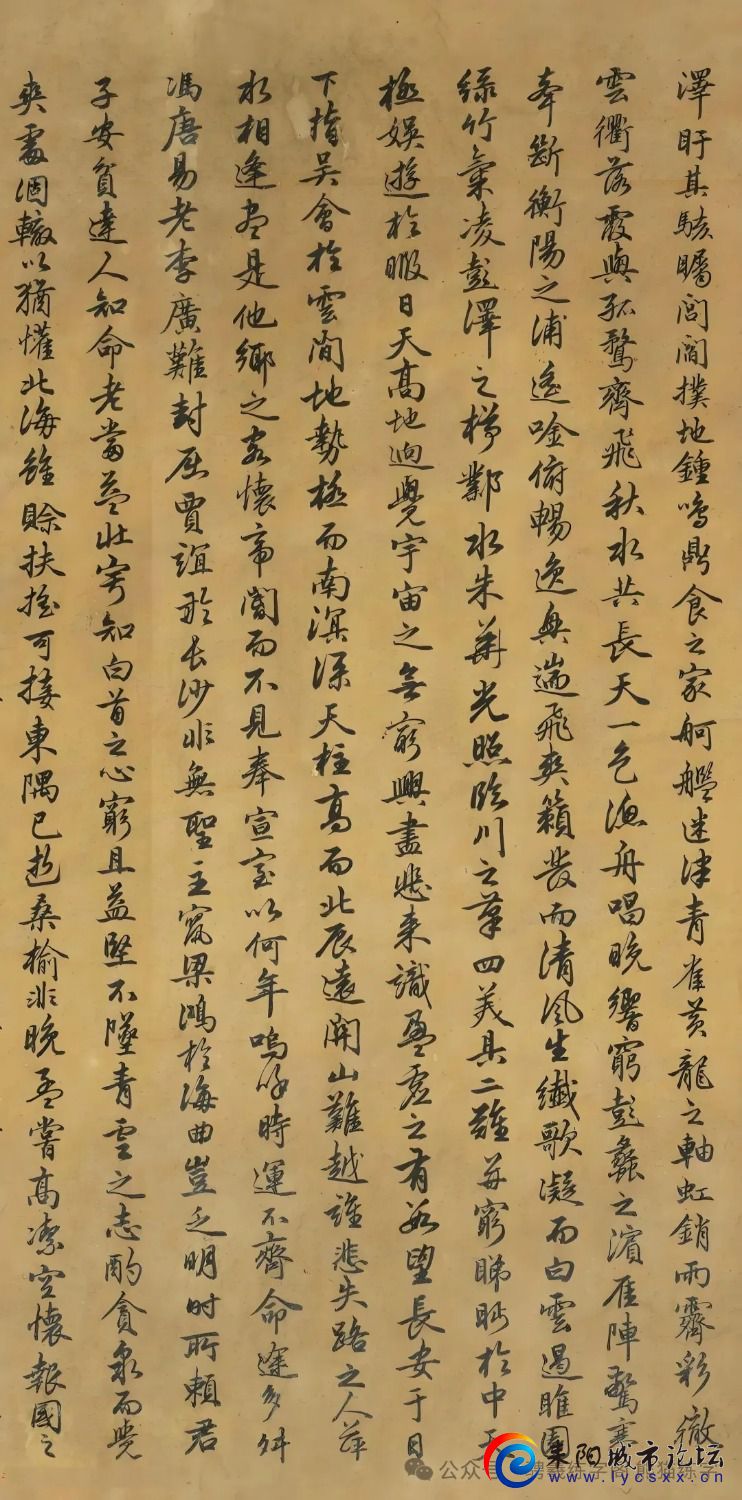 澤盱其駭矚閭閻撲地鍾鳴鼎食之家舸艦迷津青雀黃龍之軸虹銷雨霽彩徹
雲衢落霞與孤鶩齊飛秋水共長天一色漁舟唱晚響窮彭蠡之濱雁陣驚寒
聲斷衡陽之浦遙吟俯暢逸興遄飛爽籟發而清風生纖歌凝而白雲遏睢園
綠竹氣凌彭澤之樽鄴水朱華光照臨川之筆四美具二難并窮睇眄於中天
極娛遊於暇日天高地迥覺宇宙之無窮興盡悲來識盈虛之有數望長安于日
下指吳會於雲間地勢極而南溟深天柱高而北辰遠關山難越誰悲失路之人萍
水相逢盡是他鄉之客懷帝閽而不見奉宣室以何年嗚呼時運不齊命途多舛
馮唐易老李廣難封屈賈誼於長沙非無聖主竄梁鴻於海曲豈乏明時所賴君
子安貧達人知命老當益壯寧知白首之心窮且益堅不墜青雲之志酌貪泉而覺
爽處涸轍以猶懽北海雖賒扶搖可接東隅已逝桑榆非晚孟嘗高潔空懷報國之
公众号
阳城市论坛
www.lycsxx.cn